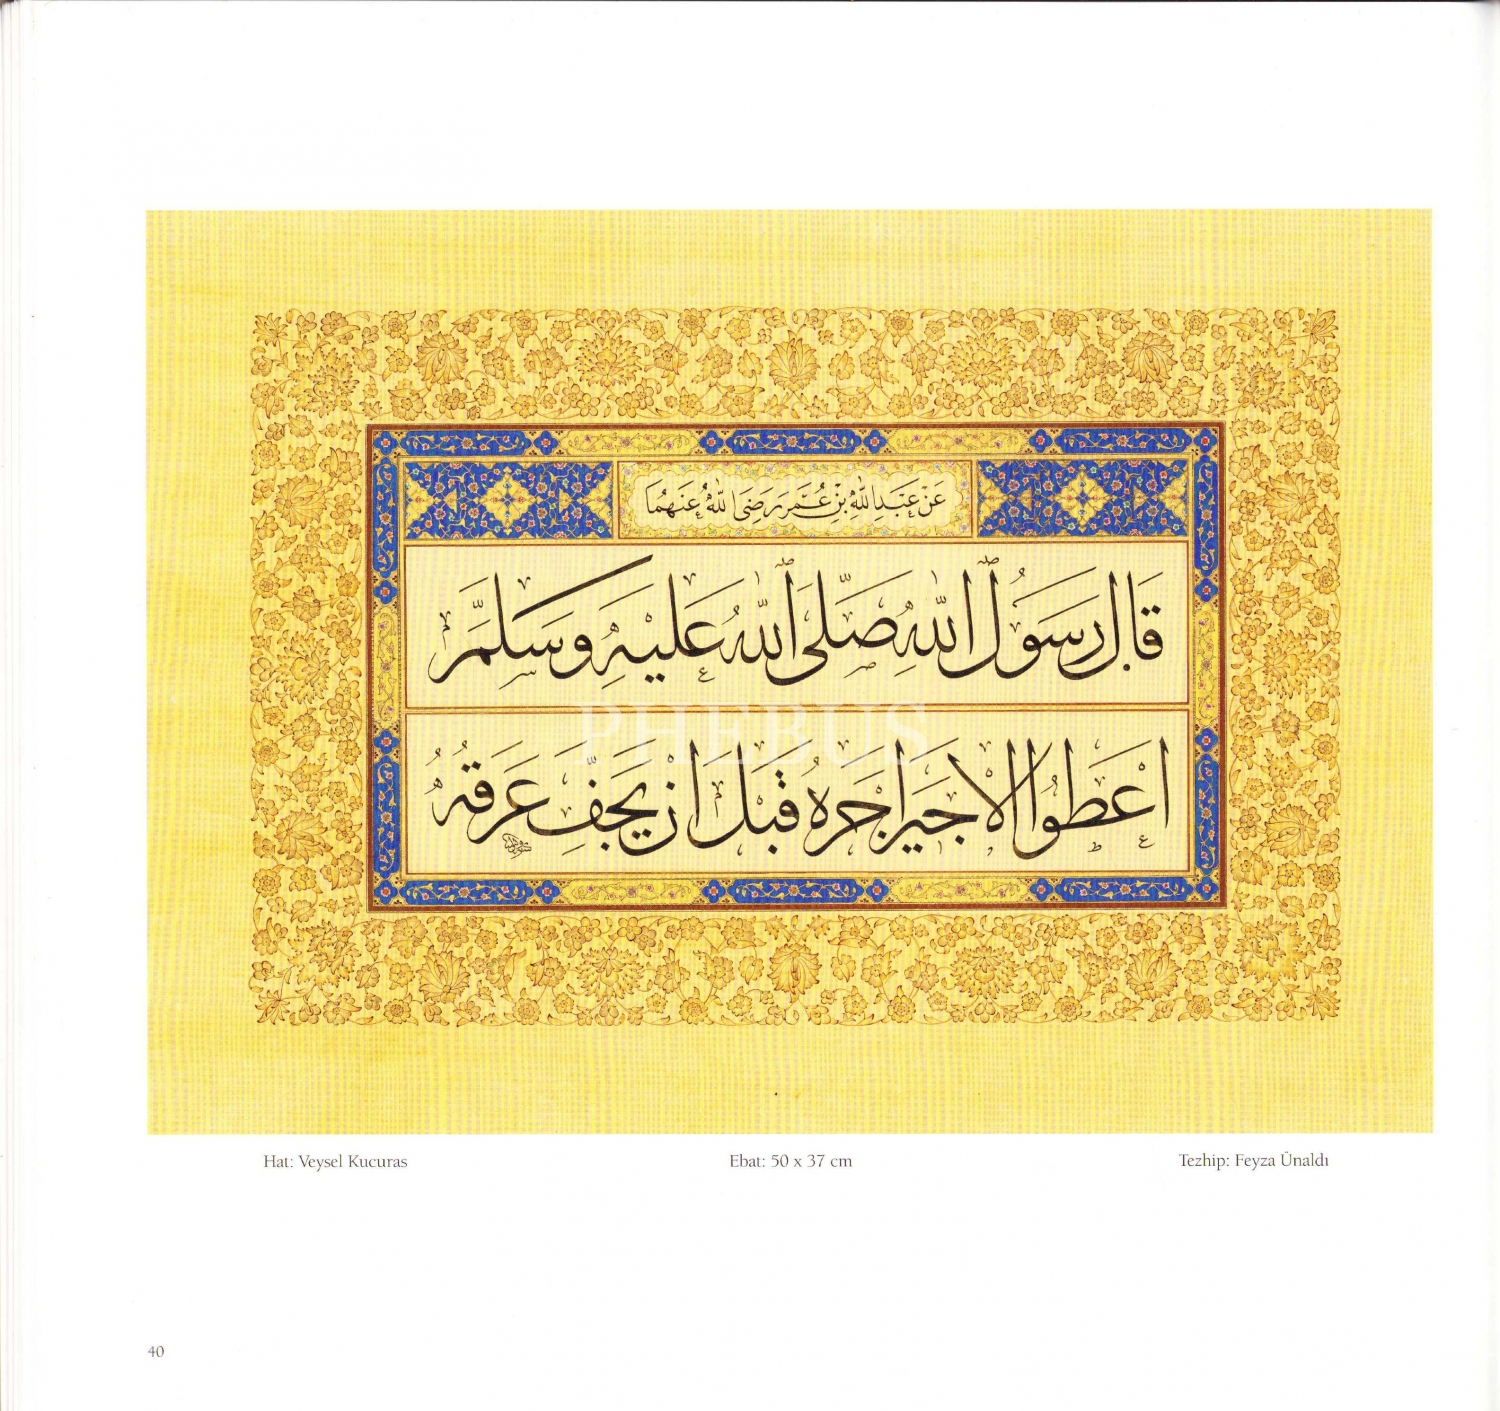 عَنْ عَبْدِ اللّٰهِ بْنِ عُمَرَ رَضِيَ اللّٰهُ عَنْهُمَا
قَالَ رَسُولُ اللّٰهِ صَلَّى اللّٰهُ عَلَيْهِ وَسَلَّمَ
اَعْطُوا الْاَجِيرَ اَجْرَهُ قَبْلَ اَنْ يَجِفَّ عَرَقُهُ
PHEBUS
Hat: Veysel Kucuras
Ebat: 50 x 37 cm
Tezhip: Feyza Ünaldı
40